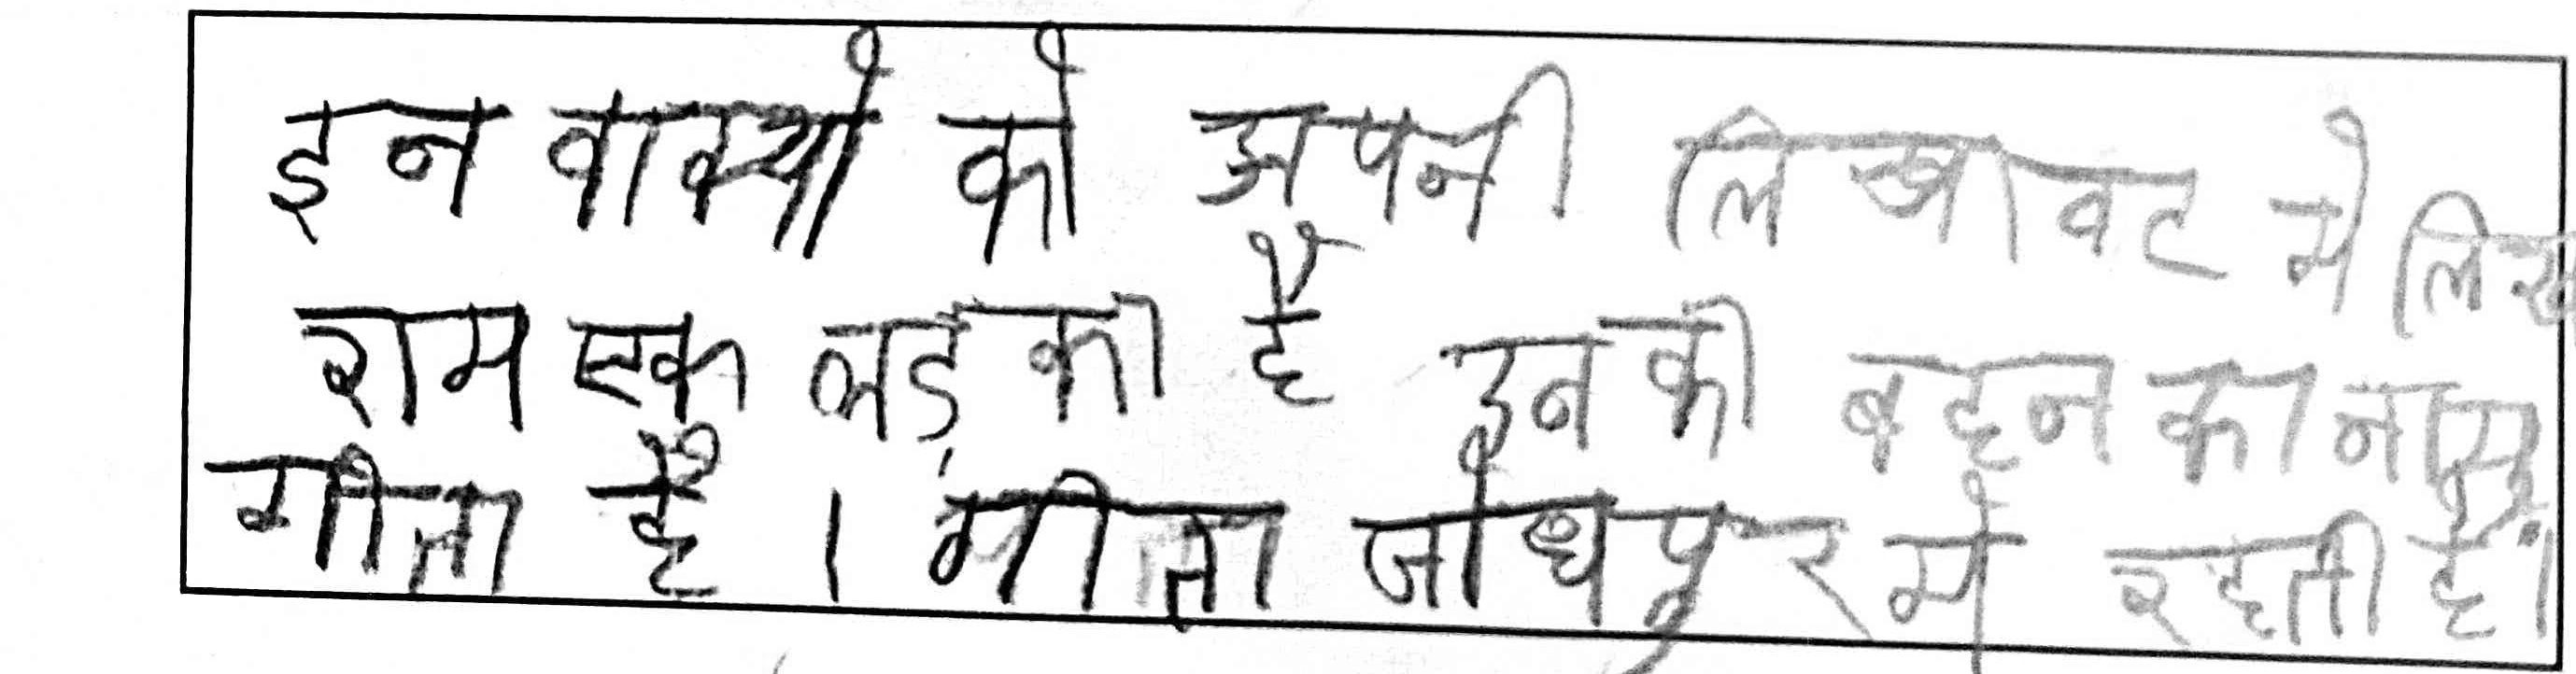 इन वाक्यो को अपनी लिखावट मे लिख
राम एक लड़का है उनकी बहन का नाम
गीता है । गीता जोधपुर मे रहती है।